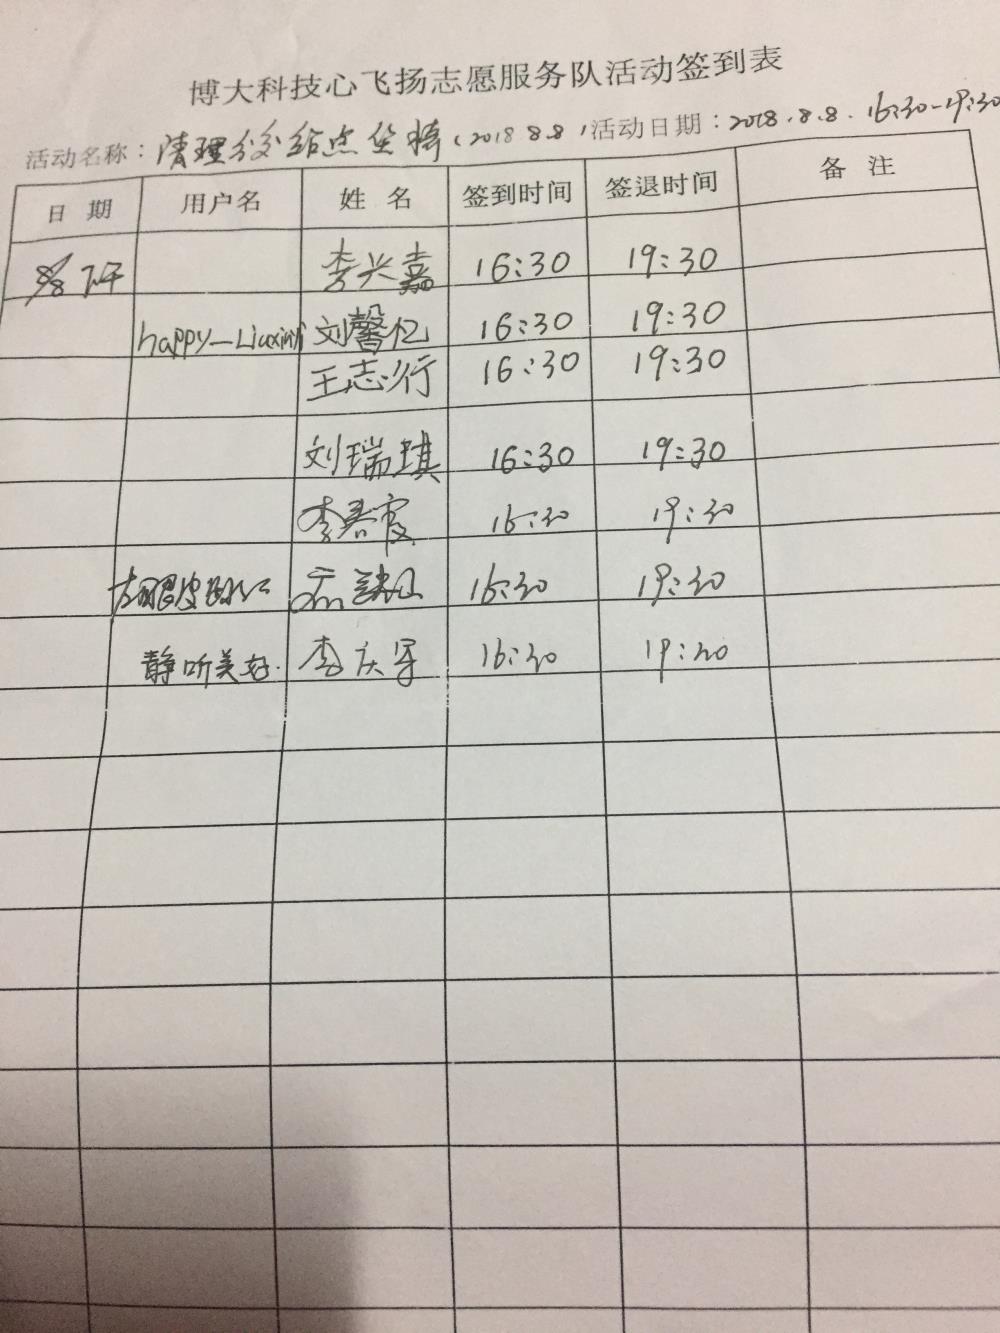 博大科技心飞扬志愿服务队活动签到表
活动名称：清理 站点 (2018 8.8)活动日期：2018.8.8. 16:30-19:30
日期 用户名 姓名 签到时间 签退时间 备注
8/8 下午 李兴嘉 16:30 19:30
刘馨忆 16:30 19:30
王志行 16:30 19:30
刘瑞琪 16:30 19:30
李春霞 16:30 19:30
16:30 19:30
静听美好. 李庆军 16:30 19:30